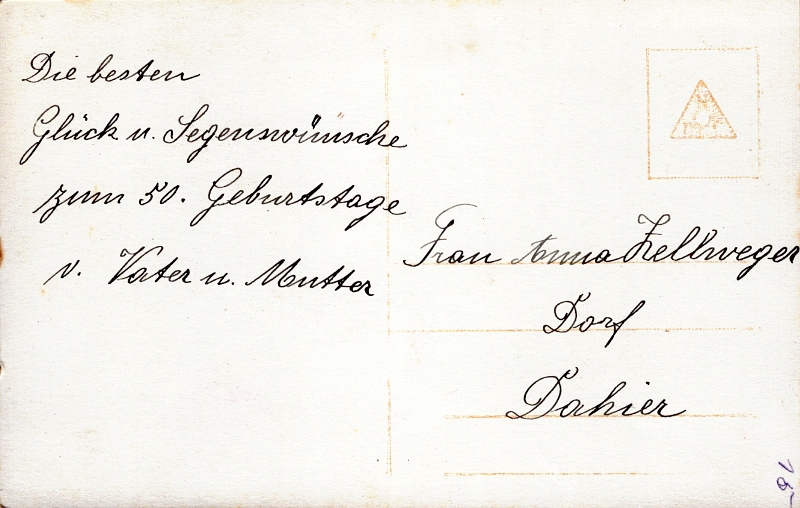 Die besten
Glück u. Segenswünsche
zum 50. Geburtstage
v. Vater u. Mutter
Frau Anna Zellweger
Dorf
Dahier